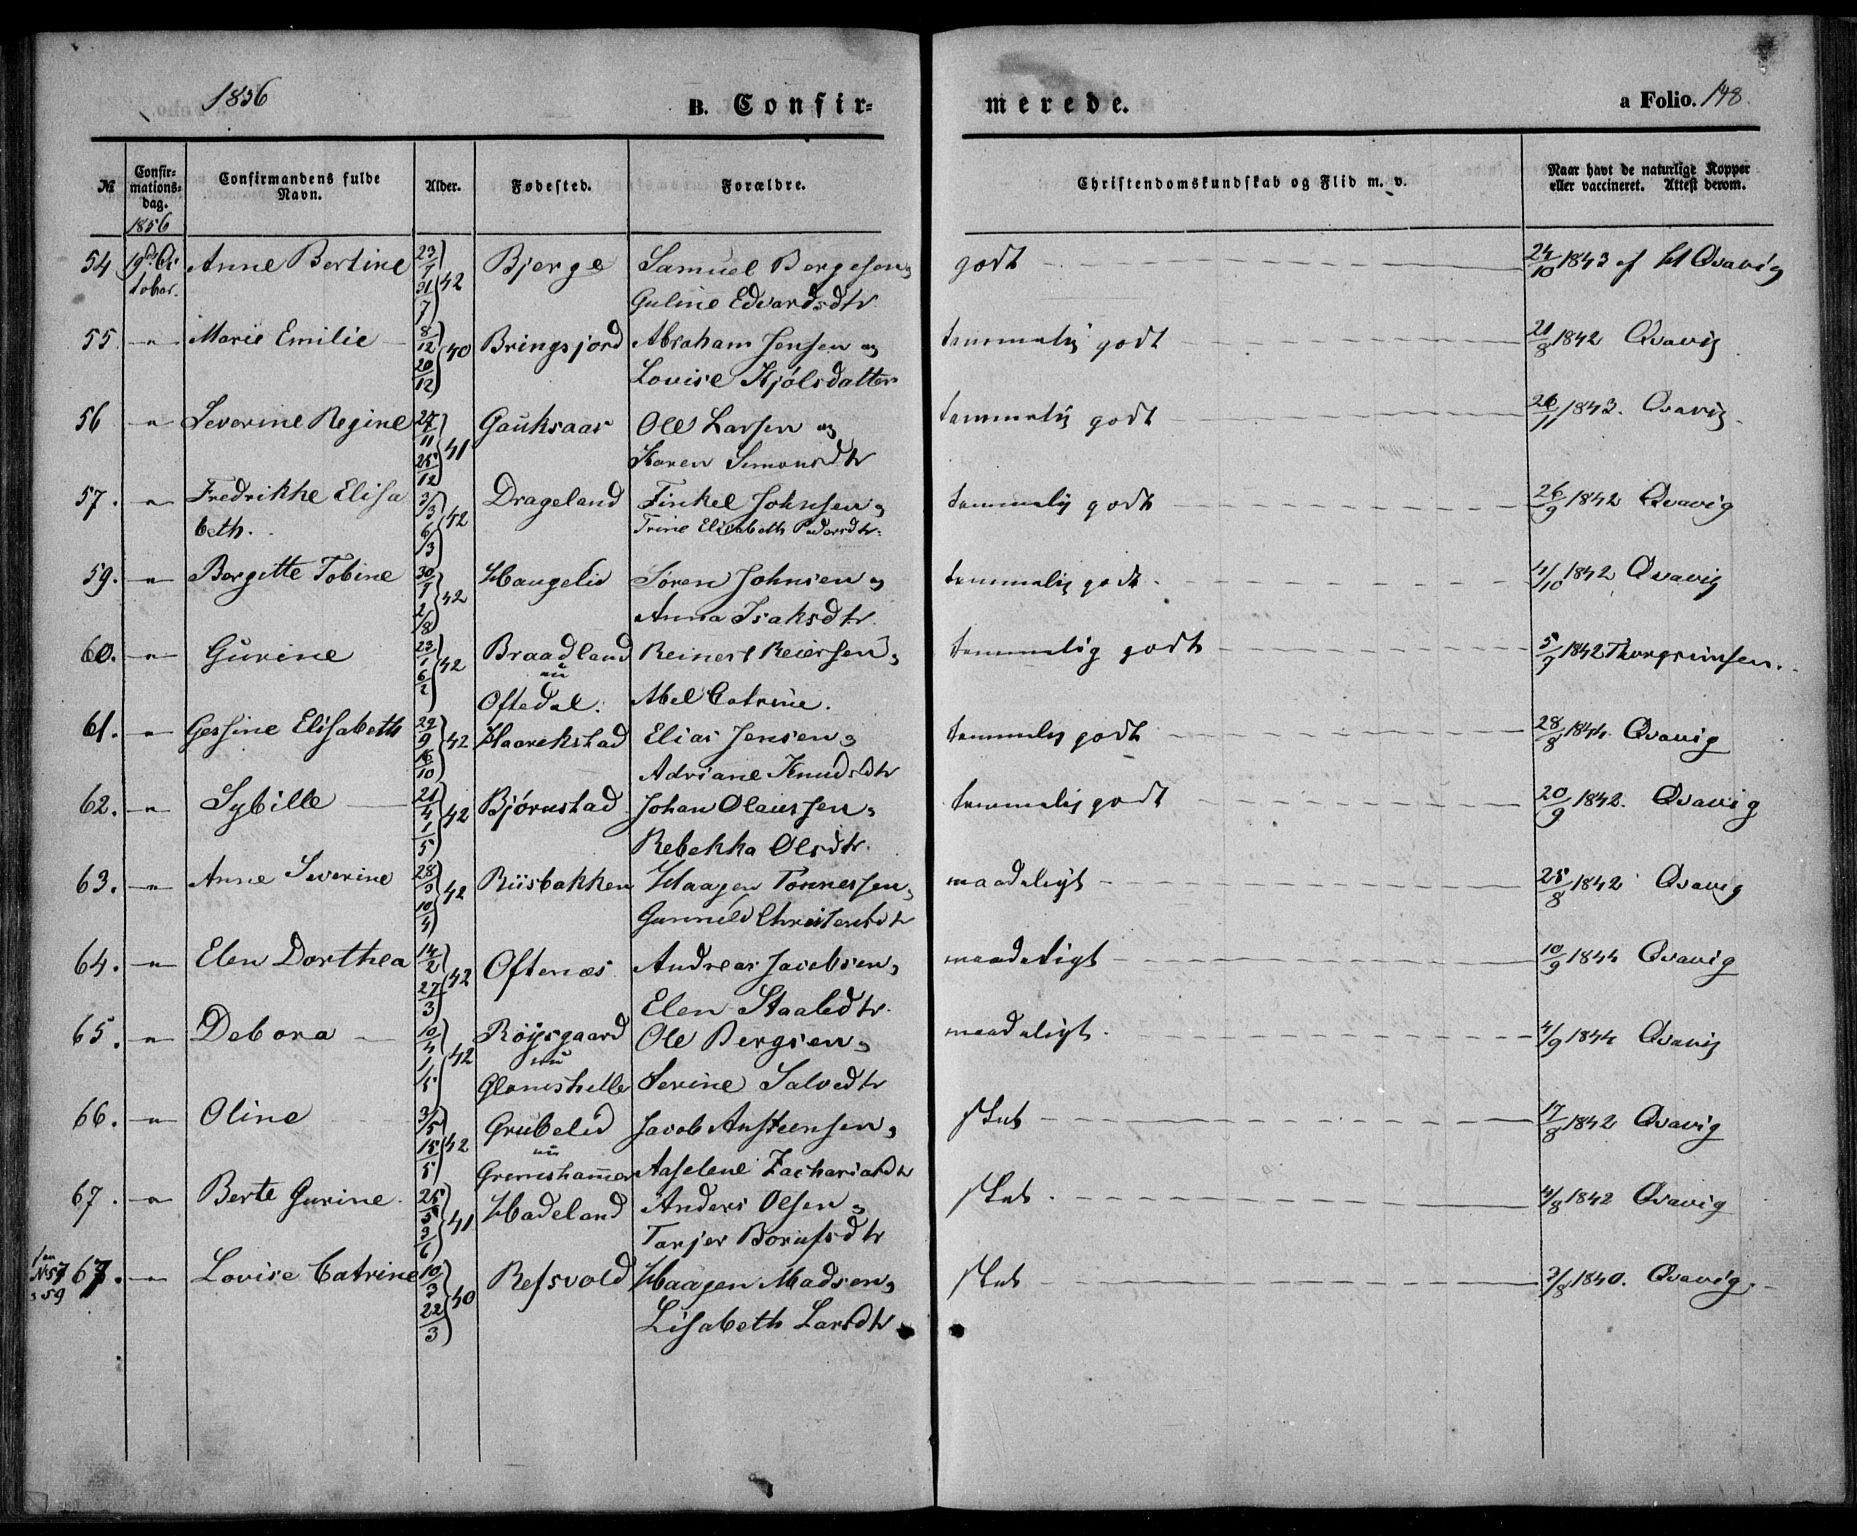 1856
B. Confir-
merede.
a Folio. 148.
№
Confir-
mations-
dag.
Confirmandens fulde
Navn.
Alder.
Fødested.
Forældre.
Christendomskundskab og Flid m. v.
Naar havt de naturlige Kopper
eller vaccineret. Attest derom.
1856
54 19de Oc Anne Bertine 23/7 Bjerge Samuel Bergesen og godt 24/10 1843 af Qvavig
tober. 31/7 42 Guline Edvardsdtr
55. " Marie Emilie 8/12 40 Bringsjord Abraham Jensen og temmelig godt 21/8 1842 Qvavig
20/12 Lovise Kjølsdatter
56 " Severine Regine 27/11 41 Gauksaas Ole Larsen og temmelig godt 26/11 1843. Qvavig
25/12 Karen Simonsdtr
57. " Fredrikke Elisa 3/3 42 Drageland Finkel Johnsen og temmelig godt 26/9 1842 Qvavig
beth. 6/3 Trine Elisabeth Pedersdtr.
59. " Bergitte Tobine 30/7 42 Haugelid Søren Johnsen og temmelig godt. 4/10 1842 Qvavig
2/8 Anna Isaksdtr.
60. " Gurine 23/1 42 Braadland Reinert Reiersen og temmelig godt 5/7 1842 Thorgrimsen.
6/2 nu
Oftedal. Abel Catrine.
61. " Gessine Elisabeth 29/9 42 Haarikstad Elias Jensen og temmelig godt 28/8 1844. Qvavig
16/10 Adriane Knudsdtr
62. " Sybille 21/4 42 Bjørnstad Johan Olaussen og temmelig godt 20/9 1842. Qvavig
1/5 Rebekka Olsdtr.
63. " Anne Severine 28/3 42 Riisbakken Haagen Tønnessen og maadeligt 25/8 1842 Qvavig
10/4 Gunnild Christensdtr
64. " Elen Dorthea 14/2 42 Oftenæs Andreas Jacobsen og maadeligt 10/9 1844 Qvavig
27/3 Elen Staaledtr.
65. " Debora 10/4 42 Røysgaard Ole Bergsen og maadeligt. 4/9 1844 Qvavig
1/5 nu
Glomshelle Serine Salvedtr
66. " Oline 3/5 42 Grubelid Jacob Austeensen og slet 17/8 1842 Qvavig
15/5 nu
Gremshammer Aaselene Zachariasdtr
67. " Berte Gurine. 25/5 41 Hadeland Anders Olsen og slet. 4/8 1842 Qvavig
3/6 Tarjer Borufsdtr
67. " Lovise Catrine 10/3 40 Refsvold Haagen Madsen og slet 2/8 1840. Qvavig.
№57
59 22/3 Lisabeth Larsdtr